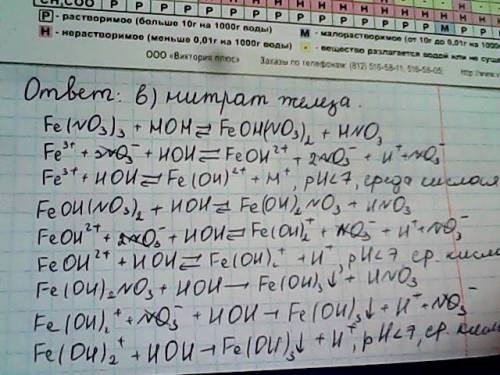 CH₃COO Р Р Р Р Р Р Р Р Р
Р - растворимое (больше 10г на 1000г воды) М - малорастворимое (от 10г до 0,01г на 1000г
Н - нерастворимое (меньше 0,01г на 1000г воды) - вещество разлагается водой или не сущ
ООО "Виктория плюс" Заказы по телефонам: (812) 516-58-11, 516-58-05; http://www.
Ответ: в) нитрат железа.
Fe(NO₃)₃ + HOH ⇄ FeOH(NO₃)₂ + HNO₃
Fe³⁺ + 3NO₃⁻ + HOH ⇄ FeOH²⁺ + 2NO₃⁻ + H⁺ + NO₃⁻
Fe³⁺ + HOH ⇄ Fe(OH)²⁺ + H⁺, pH<7, среда кислая
FeOH(NO₃)₂ + HOH ⇄ Fe(OH)₂NO₃ + HNO₃
FeOH²⁺ + 2NO₃⁻ + HOH ⇄ Fe(OH)₂⁺ + NO₃⁻ + H⁺ + NO₃⁻
FeOH²⁺ + HOH ⇄ Fe(OH)₂⁺ + H⁺, pH<7, ср. кисла
Fe(OH)₂NO₃ + HOH → Fe(OH)₃↓ + HNO₃
Fe(OH)₂⁺ + NO₃⁻ + HOH → Fe(OH)₃↓ + H⁺ + NO₃⁻
Fe(OH)₂⁺ + HOH → Fe(OH)₃↓ + H⁺, pH<7, ср. кисл